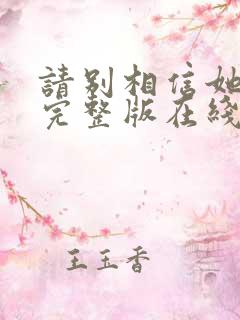 請別相信她
完整版在綫
王玉香